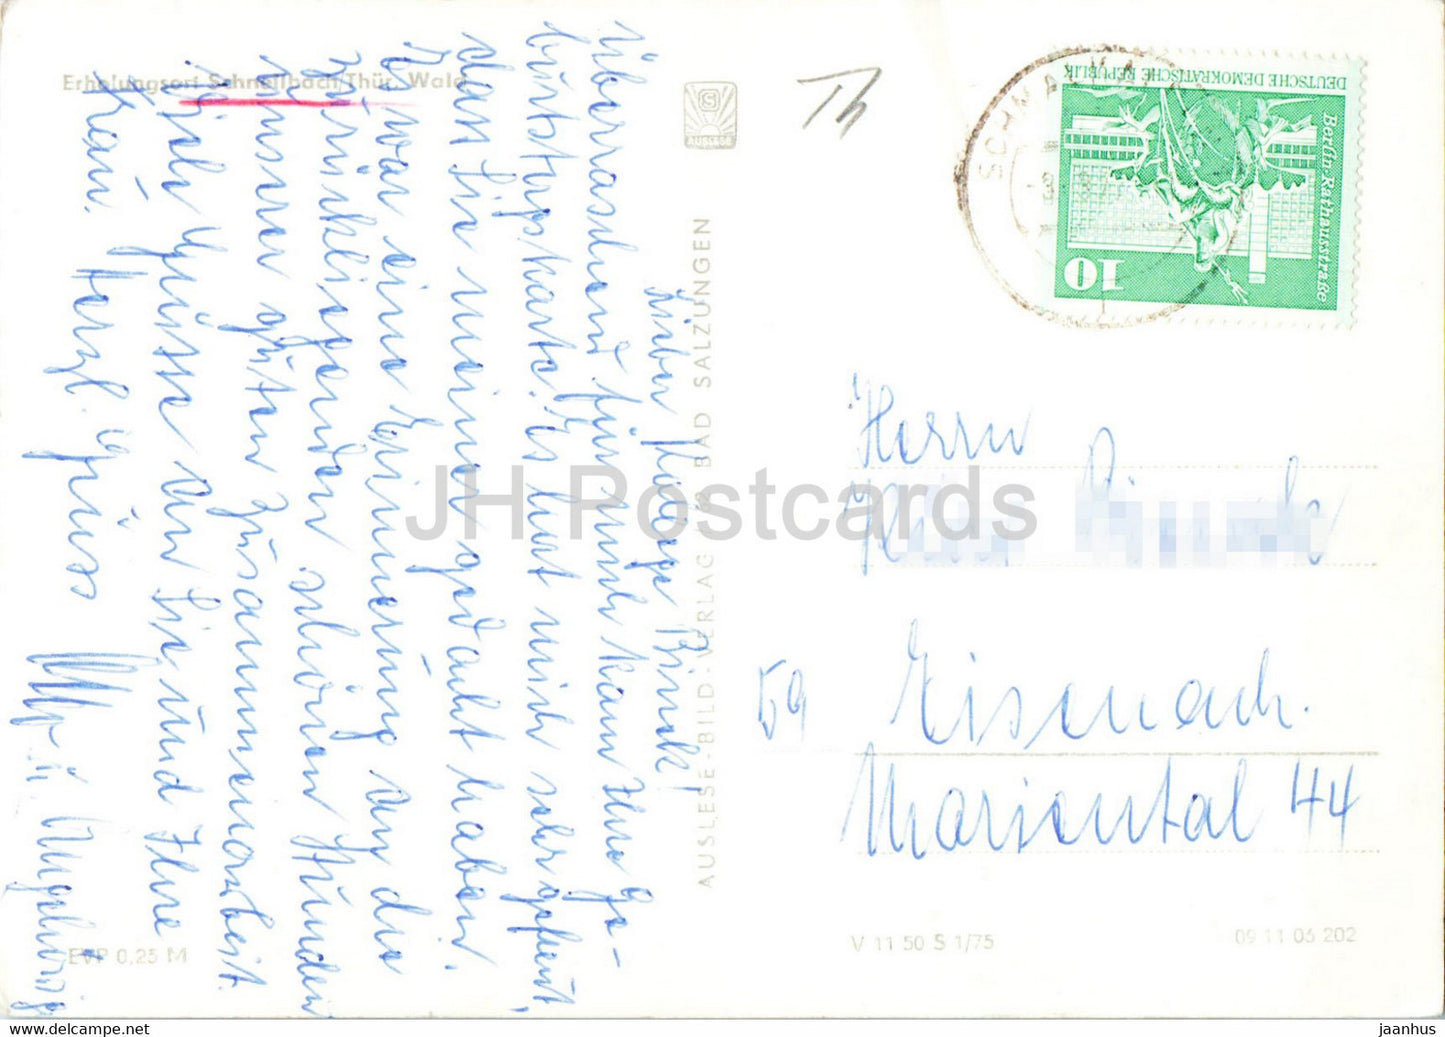 Erholungsort Schnellbach/Thür. Wald
Lieber Kollege
Überraschend für mich kam Ihre Ge-
burtstagskarte. Es hat mich sehr gefreut,
dass Sie meiner gedacht haben.
Es war eine Erinnerung an die
zurückliegenden schönen Stunden
unserer guten Zusammenarbeit.
Viele Grüsse an Sie und Ihre
Frau. Herzl. Gruss
u.
AUSLESE
AUSLESE-BILD-VERLAG BAD SALZUNGEN
Th
DEUTSCHE DEMOKRATISCHE REPUBLIK
Berlin-Rathausstraße
10
Herrn
59 Eisenach.
Mariental 44
EVP 0,25 M
V 11 50 S 1/75
09 11 06 202
JH Postcards
www.hippostcard.com
jaanhus